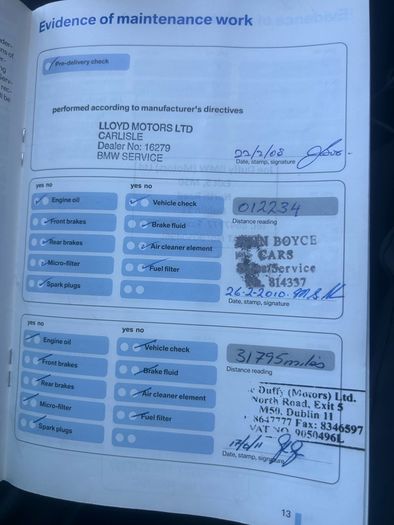 Evidence of maintenance work
Pre-delivery check
performed according to manufacturer's directives
LLOYD MOTORS LTD
CARLISLE
Dealer No: 16279
BMW SERVICE
22/2/08
Date, stamp, signature
yes no
yes no
Engine oil
Vehicle check
012234
Distance reading
Front brakes
Brake fluid
Rear brakes
Air cleaner element
BOYCE
CARS
Service
814337
Micro-filter
Fuel filter
Spark plugs
26-2-2010
Date, stamp, signature
yes no
yes no
Engine oil
Vehicle check
31795 miles
Distance reading
Front brakes
Brake fluid
Rear brakes
Air cleaner element
Duffy (Motors) Ltd.
North Road, Exit 5
M50, Dublin 11
8647777 Fax: 8346597
VAT NO. 9050496L
Micro-filter
Fuel filter
Spark plugs
Date, stamp, signature
13